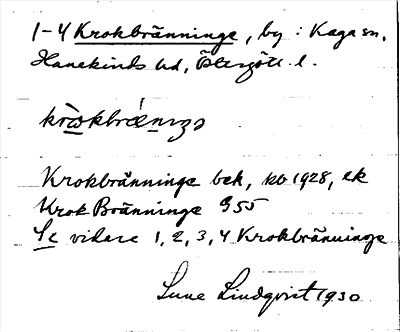 1-4 Krokbränninge, by : Kaga sn,
Hanekinds hd, Östergötl. l.
Krokbränninge bek, kb 1928, ek
Krok Bränninge G 55
Se vidare 1, 2, 3, 4 Krokbränninge
Sune Lindqvist 1930